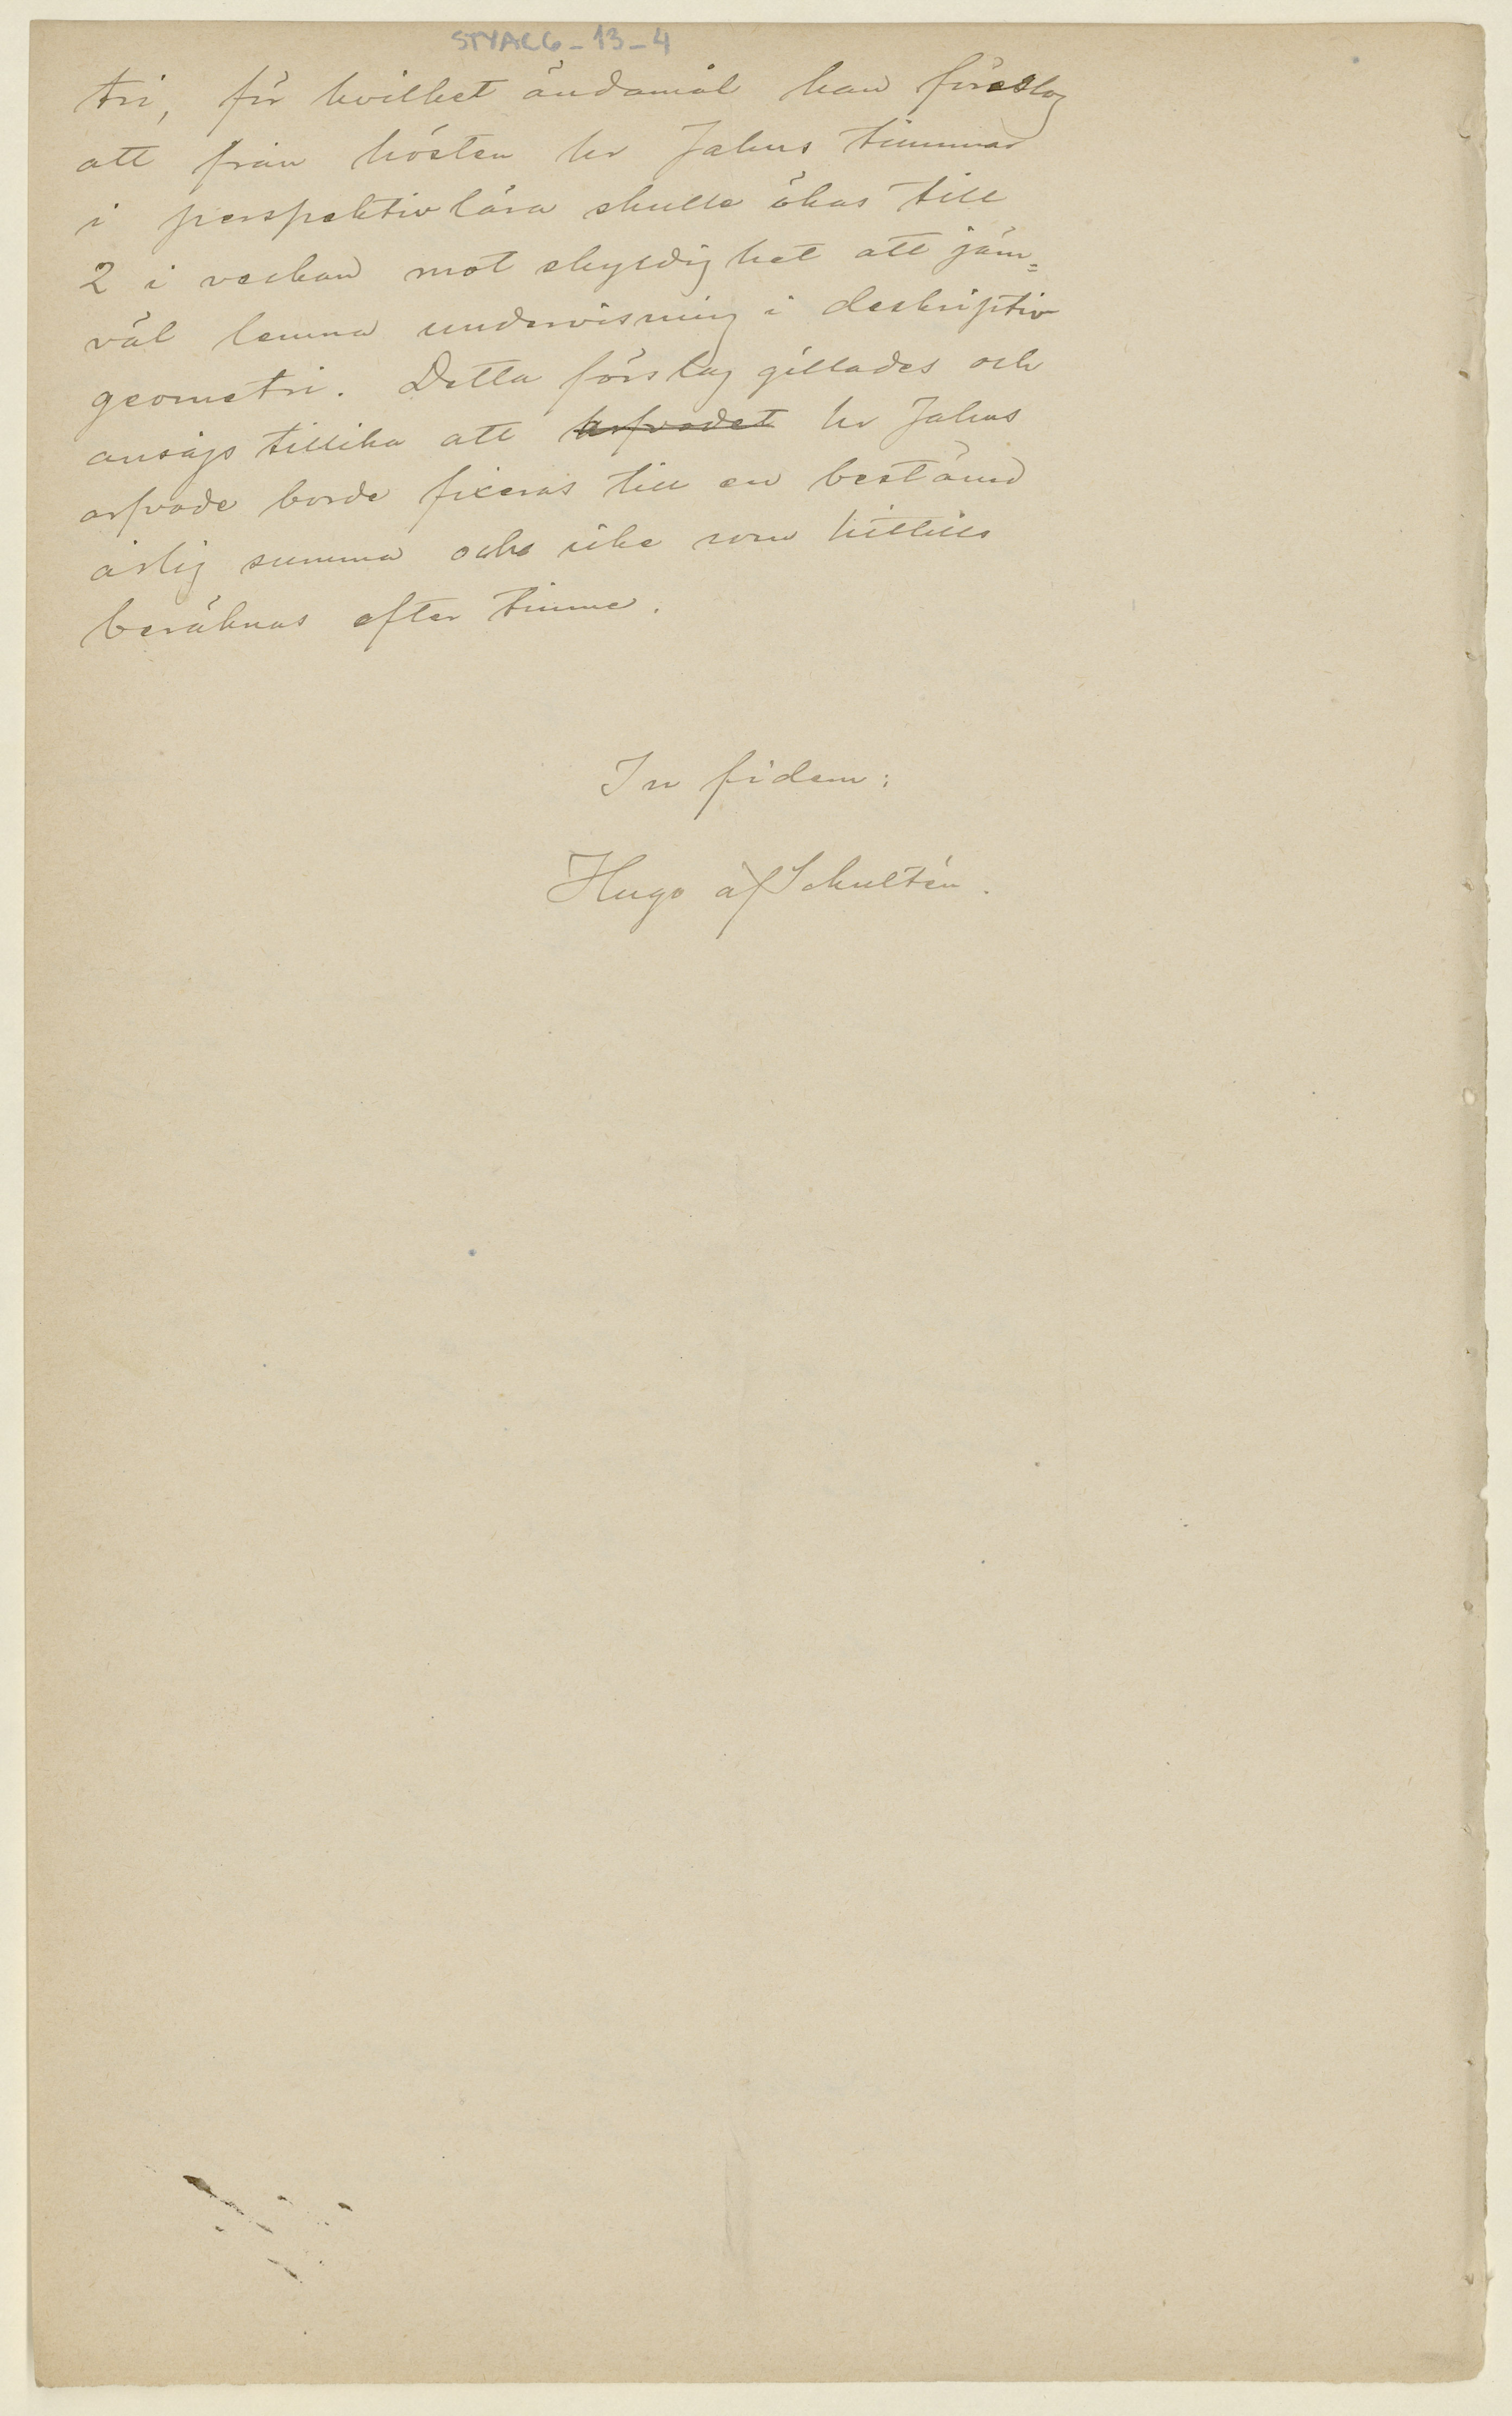 STYAL6-13-4
tri, för hvilket ändamål han föreslog
att från hösten hr Jahns timmar
i perspektivlära skulle ökas till
2 i veckan mot skyldighet att jäm=
väl lemna undervisning i deskriptiv
geometri. Detta förslag gillades och
ansågs tillika att arfvodet hr Jahns
arfvode borde fixeras till en bestämd
årlig summa och icke som hittills
beräknas efter timme.
In fidem:
Hugo af Schultén.